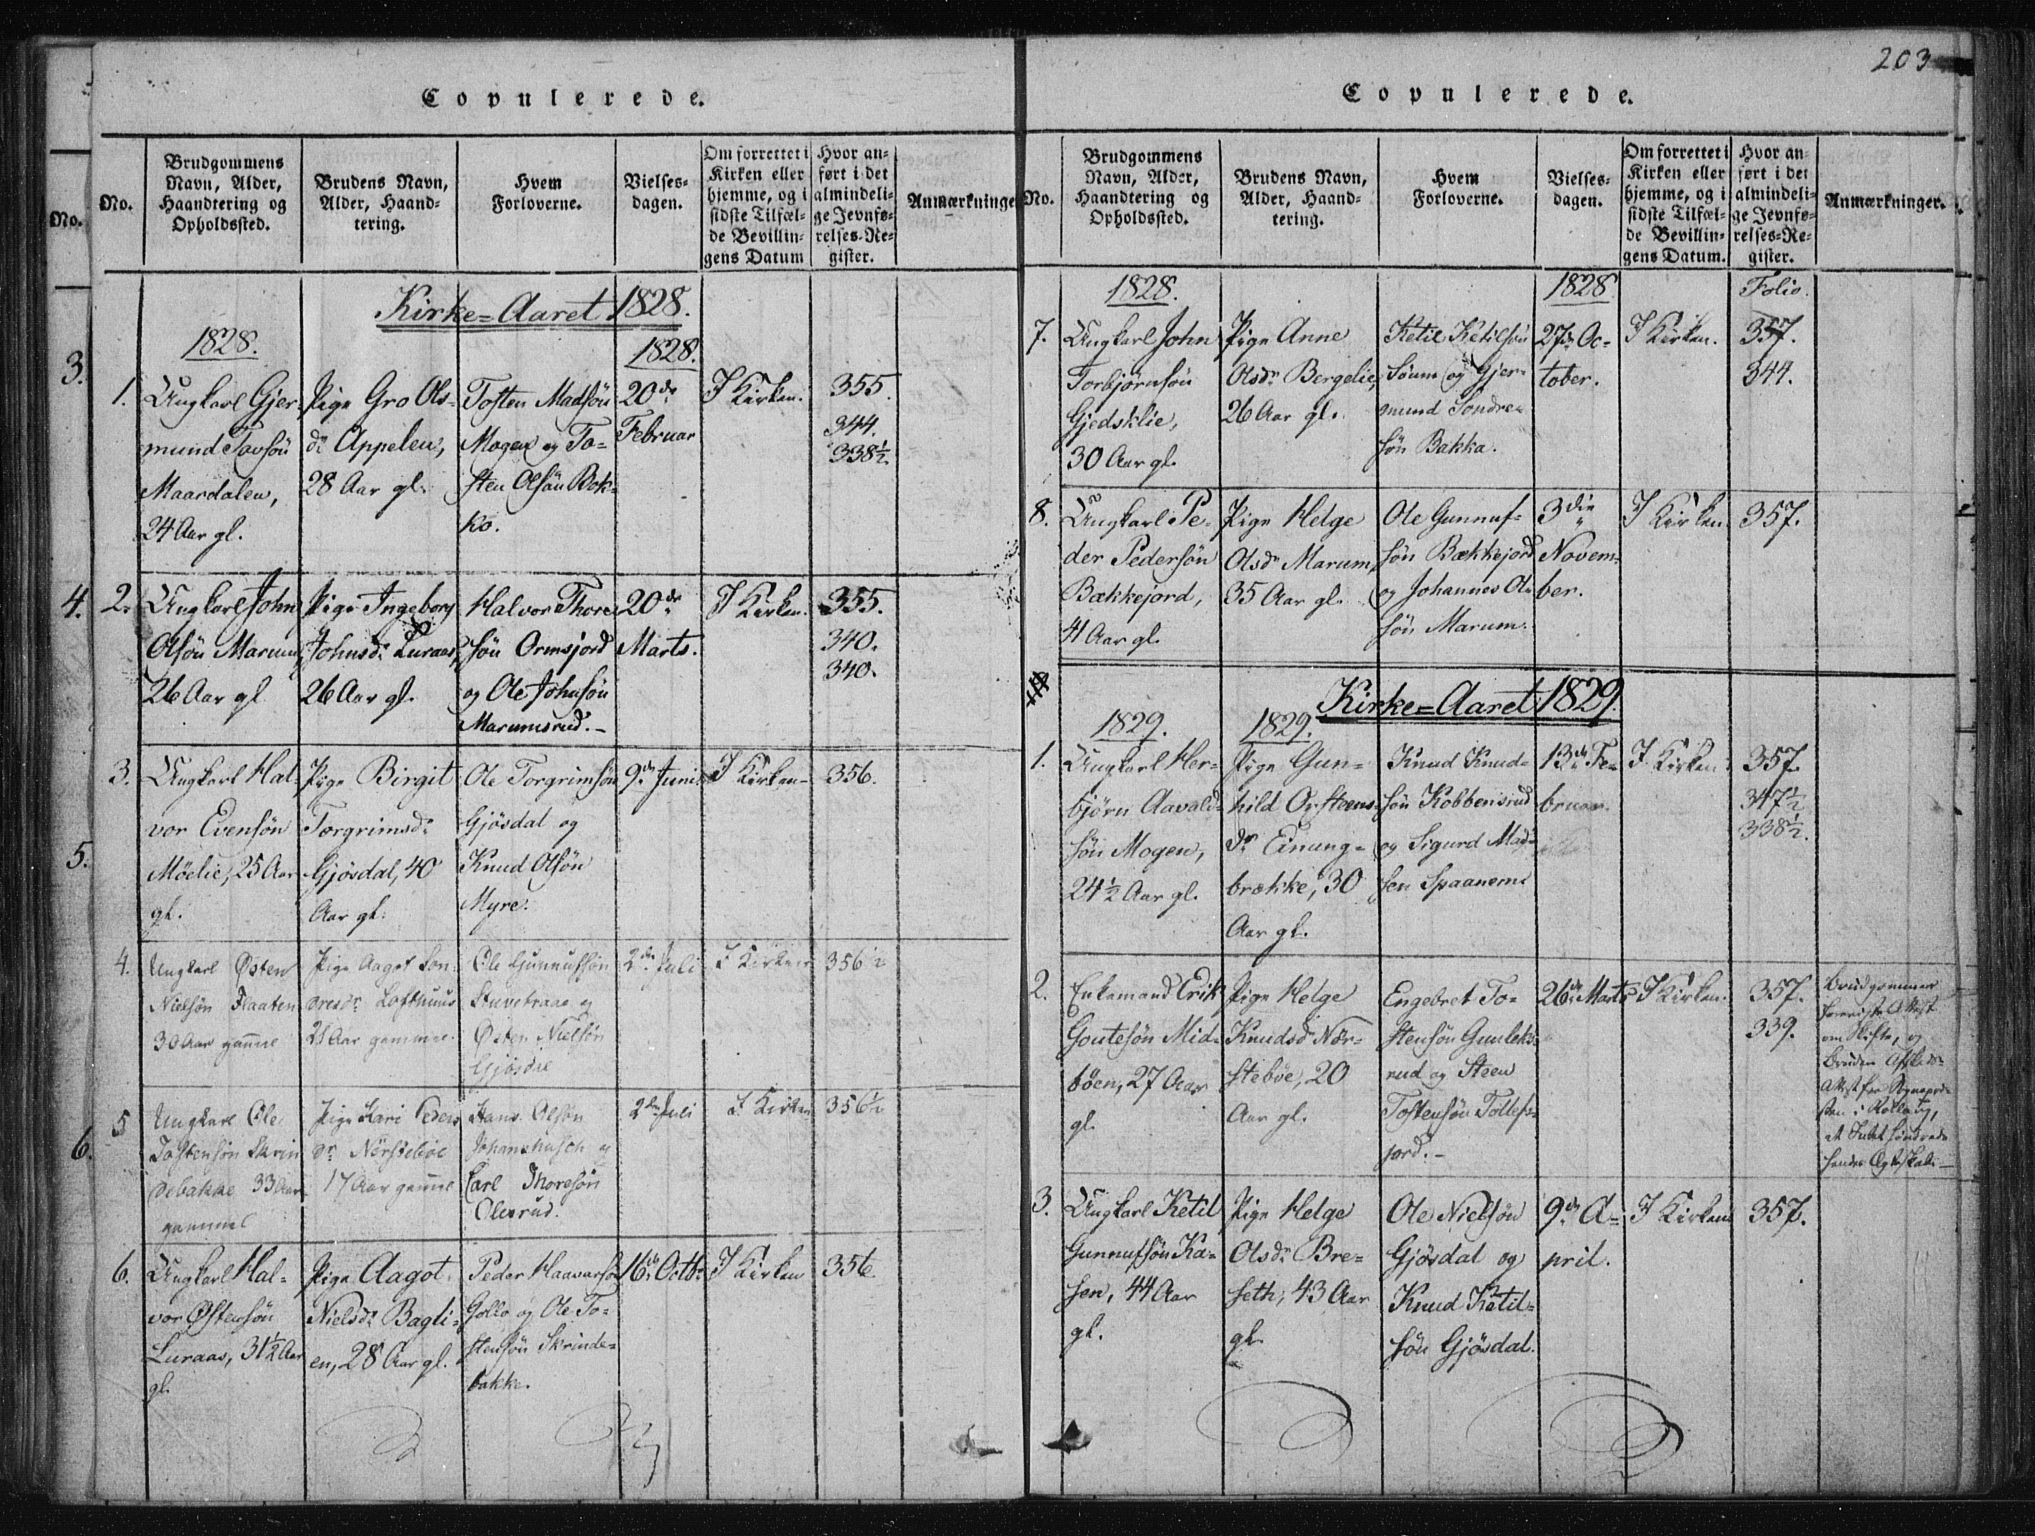 203
Copulerede.
No.
Brudgommens
Navn, Alder,
Haandtering og
Opholdssted.
Brudens Navn,
Alder, Haand-
tering.
Hvem
Forloverne.
Vielses-
dagen.
Om forrettet i
Kirken eller
hjemme, og i
sidste Tilfæl-
de Bevillin-
gens Datum
Hvor an-
ført i det
almindeli-
ge Jevnfø-
relses-Re-
gister.
Anmærkninge
No.
3.
4.
5.
6.
Kirke=Aaret 1828.
1828.
1828.
1.
Ungkarl Gjer-
mund Tovsøn
Maardalen,
24 Aar gl.
Pige Gro Ols-
dr Appelen,
28 Aar gl.
Tosten Madsøn
Mogen og To-
sten Olsøn Bok-
ko.
20de
Februar
I Kirken.
355.
344.
338½.
2.
Ungkarl John
Olsøn Marum,
26 Aar gl
Pige Ingeborg
Johnsdr Luraas,
26 Aar gl.
Halvor Thore-
søn Ormsjord
og Ole Johnsøn
Marumsrud.-
20de
Marts.
I Kirken.
355.
340.
340.
3.
Ungkarl Hal-
vor Evensøn
Möelie, 25 Aar
gl.
Pige Birgit
Torgrimsdr
Gjösdal, 40
Aar gl.
Ole Torgrimsøn
Gjösdal og
Knud Olsøn
Myre.
9de Junii
I Kirken-
356.
4.
Ungkarl Østen
Nielsøn Flaaten
30 Aar gaml
Pige Aagot Son-
dresdr Lofthuus
28 Aar gammel.
Ole Gunnufsøn
Østen Nielsøn
2den Juli
I Kirken
356½
5
Ungkarl Ole
Tostensøn Skrin
debakke 33 Aar
gammel
Pige Kari Peders
dr Nörstebøe
17 Aar gaml
Hans Olsøn
Carl Thoresøn
Olesrud.
2den Juli
I Kirken
356½
6.
Ungkarl Hal-
vor Østensøn
Luraas, 31½ Aar
gl.
Pige Aagot
Nielsdr Bagli-
en, 28 Aar gl.
Peder Haavarsøn
Gollo og Ole To-
stensøn Skrinde-
bakke.
16de Octbr
I Kirken
356.
Copulerede.
No.
Brudgommens
Navn, Alder,
Haandtering og
Opholdssted.
Brudens Navn,
Alder, Haand-
tering.
Hvem
Forloverne.
Vielses-
dagen.
Om forrettet i
Kirken eller
hjemme, og i
sidste Tilfæl-
de Bevillin-
gens Datum.
Hvor an-
ført i det
almindeli-
ge Jevnfø-
relses-Re-
gister.
Anmærkninger.
1828.
1828
Folio.
7.
Ungkarl John
Torbjørnsøn
Gjedsklie,
30 Aar gl.
Pige Anne
Olsdr Bergelie,
26 Aar gl.
Ketil Ketilsøn
Søum og Gjer-
mund Sondre-
søn Bakka.
27de Oc-
tober.
I Kirken.
357.
344.
8.
Ungkarl Pe-
der Pedersøn
Bækkejord,
41 Aar gl.
Pige Helge
Olsdr Marum,
35 Aar gl.
Ole Gunnuf-
søn Bækkejord
og Johannes Ol-
søn Marum.
3die
Novem-
ber.
I Kirken.
357.
Kirke=Aaret 1829.
1829.
1829.
1.
Ungkarl Her-
bjørn Aavalds-
søn Mogen,
24½ Aar gl.
Pige Gun-
hild Oysteens-
dr Einung-
brække, 30
Aar gl.
Knud Knud-
søn Kobbensrud
og Sigurd Mad-
sen Spaanem
13de Fe-
bruar.
I Kirken.
357.
347½
338½.
2.
Enkemand Erik
Goutesøn Mid-
böen, 27 Aar
gl.
Pige Helge
Knudsd Nør-
steböe, 20
Aar gl.
Engebret To-
stensøn Gunleks-
rud og Steen
Tostensøn Tollefs-
jord.-
26de Marts
I Kirken.
357.
339.
Brudgommen
foreviste Attest
om Skifte, og
Bruden
Attest fra Sognepræ-
sten i Rollag,
at Intet hindrede
hendes Ægteskab.-
3.
Ungkarl Ketil
Gunnufsøn Ka-
sen, 44 Aar
gl.
Pige Helge
Olsdr Bre-
seth, 43 Aar
gl.
Ole Nielsøn
Gjösdal og
Knud Ketil-
søn Gjösdal.
9de A-
pril.
I Kirken
357.